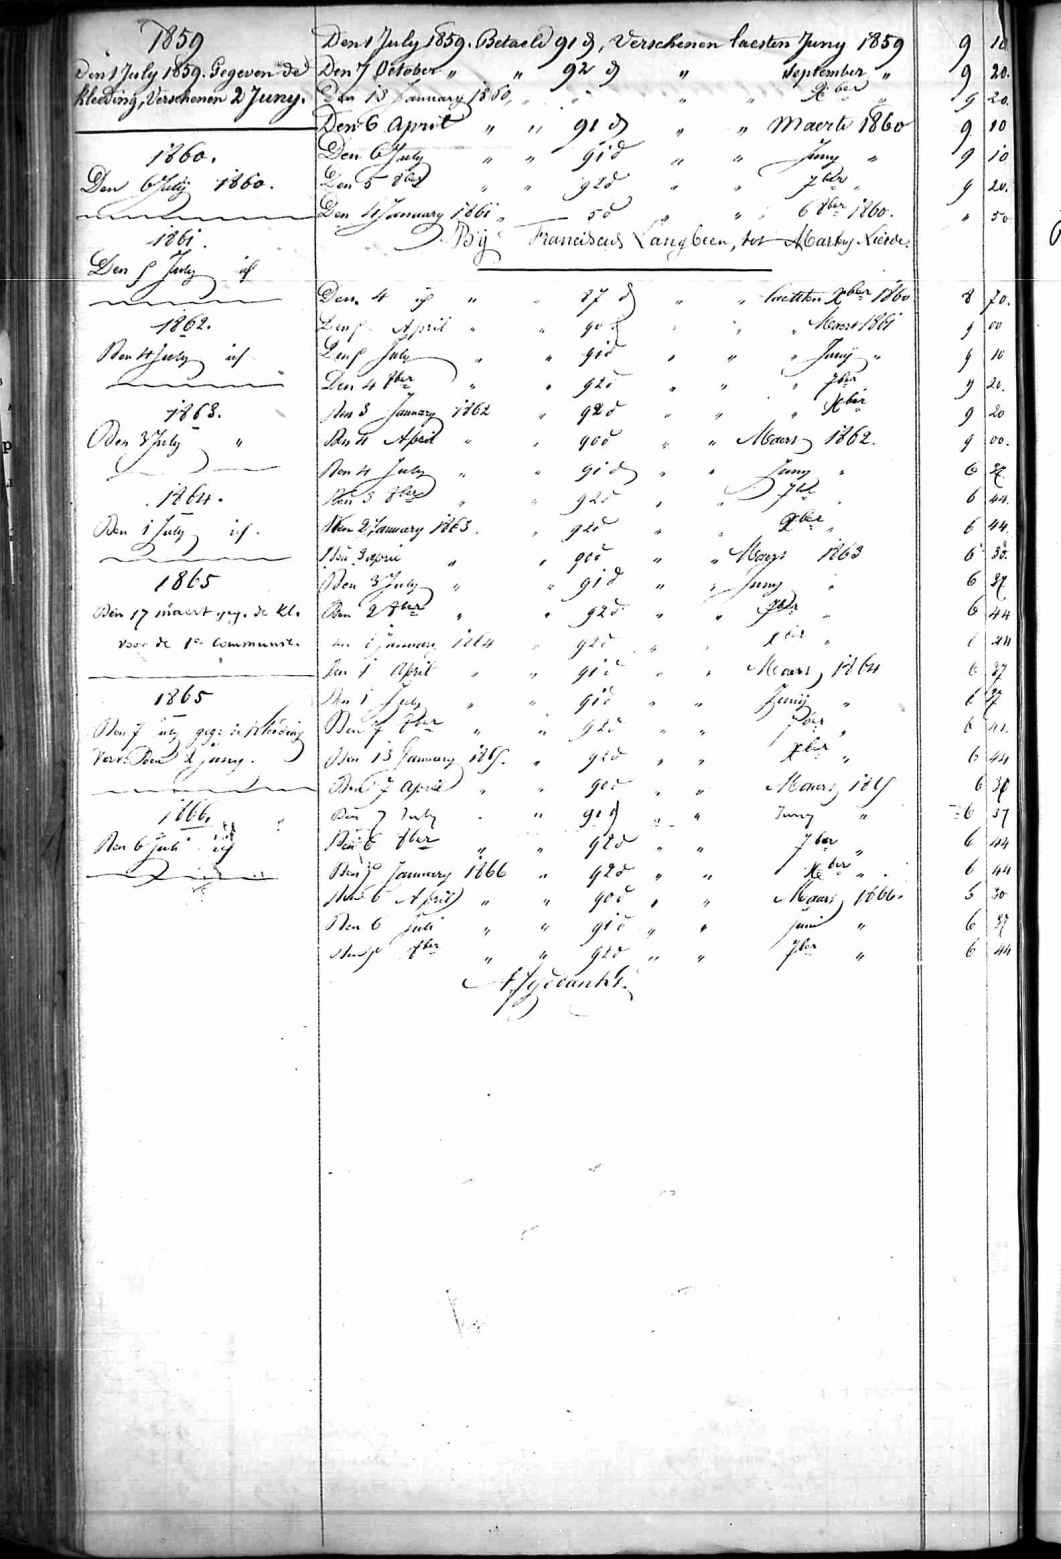 1859
Den 1 July 1859. Gegeven de
kleeding, Verschenen 2 Juny.
1860.
Den 6 July 1860.
1861.
Den 5 July id
1862.
Den 4 July id
1863.
Den 3 July "
1864.
Den 1 July id.
1865
Den 17 maert geg. de kl.
voor de 1e Communie.
1865
Den 7 July geg: de kleeding
Versc. Den 2 Juny.
1866.
Den 6 Juli id
Den 1 July 1859. Betaeld 91 d, Verschenen laesten Juny 1859 9 10
Den 7 October " " 92 d " September " 9 20.
Den 13 January 1860, " " " " Xber " 9 20.
Den 6 April " " 91 d " " Maerte 1860 9 10
Den 6 July " " 91 d " " Juny " 9 10
Den 5 8ber " " 92 d " " 7ber " 9 20.
Den 4 January 1861 " 5 d " " 6 8ber 1860. " 50
Bij Franciscus Langbeen, tot Marky Lierde.
Den 4 id " " 87 d " " laetsten Xber 1860 8 70.
Den 5 April " " 90 d " " Meert 1861 9 00
Den 5 July " " 91 d " " Junij " 9 10
Den 4 8ber " " 92 d " " 7ber 9 20.
Den 3 January 1862 " 92 d " " " Xber 9 20
Den 4 April " " 90 d " " Maers 1862. 9 00.
Den 4 July " " 91 d " " Juny " 6 37.
Den 3 8ber " " 92 d " " 7ber " 6 44.
Den 2 January 1863. " 92 d " " Xber " 6 44
Den 3 april " " 90 d " " Maers 1863 6 30.
Den 3 July " " 91 d " " Juny " 6 37
Den 2 8ber " " 92 d " " 7ber " 6 44
den 1 January 1864 " 92 d " " Xber " 6 44
Den 1 April " " 91 d " " Maers 1864 6 37
Den 1 July " " 91 d " " Junij " 6 37
Den 7 8ber " " 92 d " " 7ber " 6 44.
Den 13 January 1865. " 92 d " " Xber " 6 44
Den 7 April " " 90 d " " Maers 1865 6 30
Den 7 July " " 91 d " " Juny " 6 37
Den 6 8ber " " 92 d " " 7ber " 6 44
Den 5 January 1866 " 92 d " " Xber " 6 44
Den 6 April " " 90 d " " Maars 1866. 6 30
Den 6 Juli " " 91 d " " Juni " 6 37
Den 5 8ber " " 92 d " " 7ber " 6 44
Afgedankt.